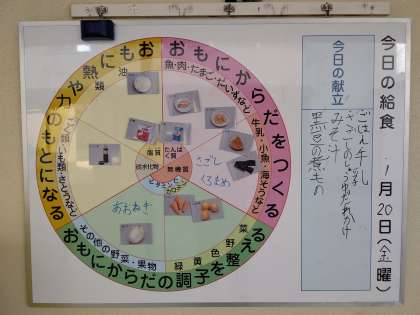 今日の給食
1月20日(金曜)
今日の献立
ごはん 牛乳
みそ汁
黒豆の煮もの
おもにからだをつくる
魚・肉・たまご・だいずなど
牛乳・小魚・海そうなど
おもに熱や力のもとになる
油類
こく類・いも類・さとうなど
おもにからだの調子を整える
緑黄色野菜
その他の野菜・果物
脂質
たんぱく質
炭水化物
無機質
ビタミンC
さごし
くろまめ
あおねぎ